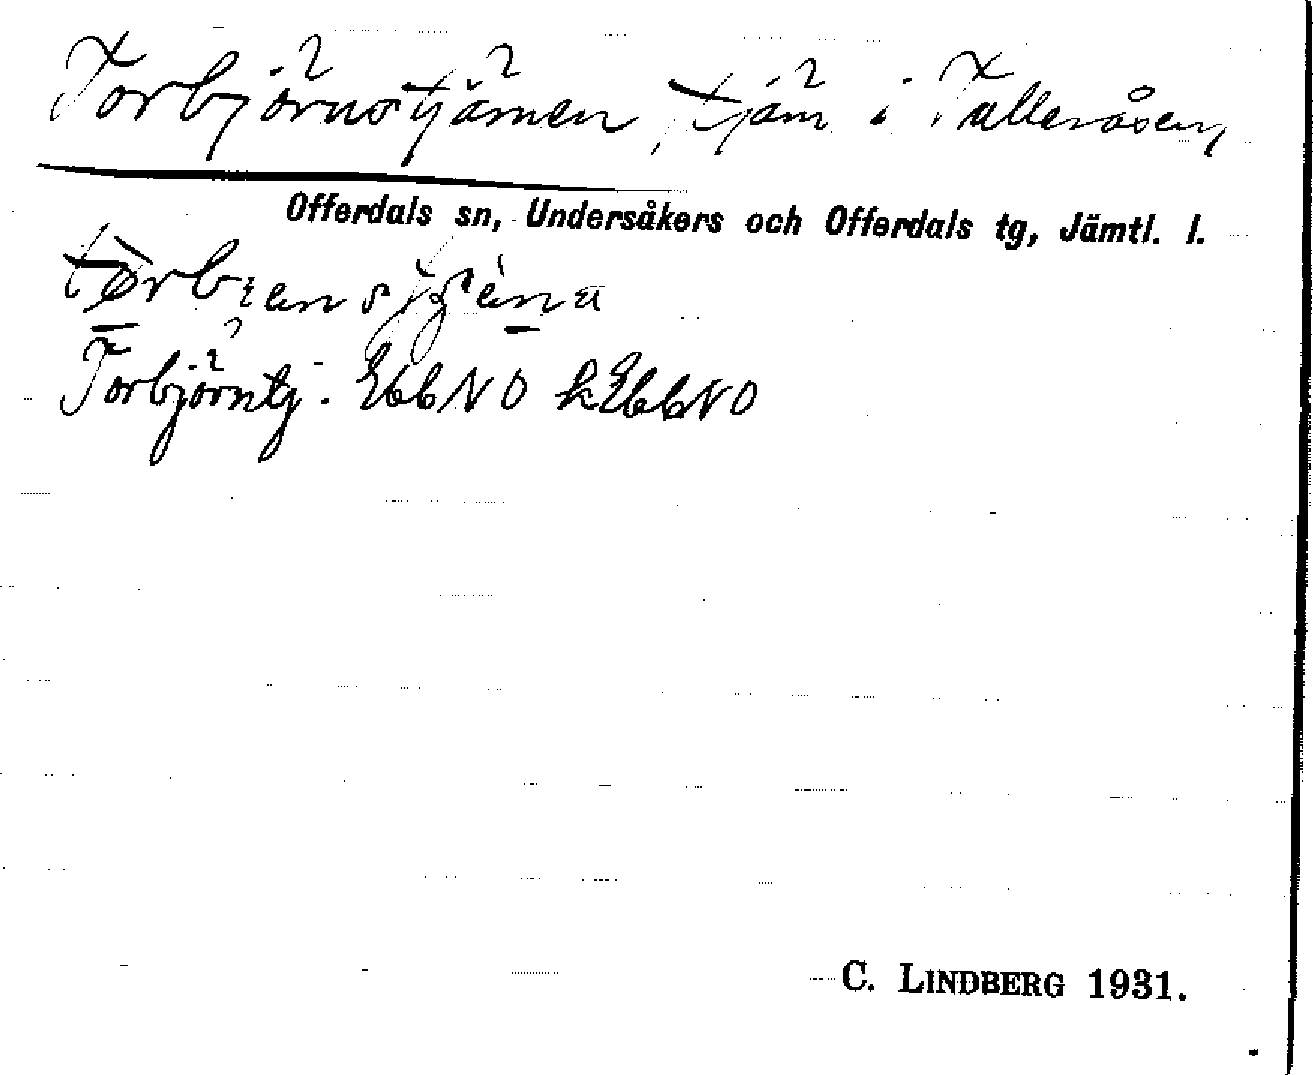 Torbjörnstjärnen, tjärn i Tulleråsen,
Offerdals sn, Undersåkers och Offerdals tg, Jämtl. l.
Torbjörntj. EbbNO kEbbNO
C. LINDBERG 1931.